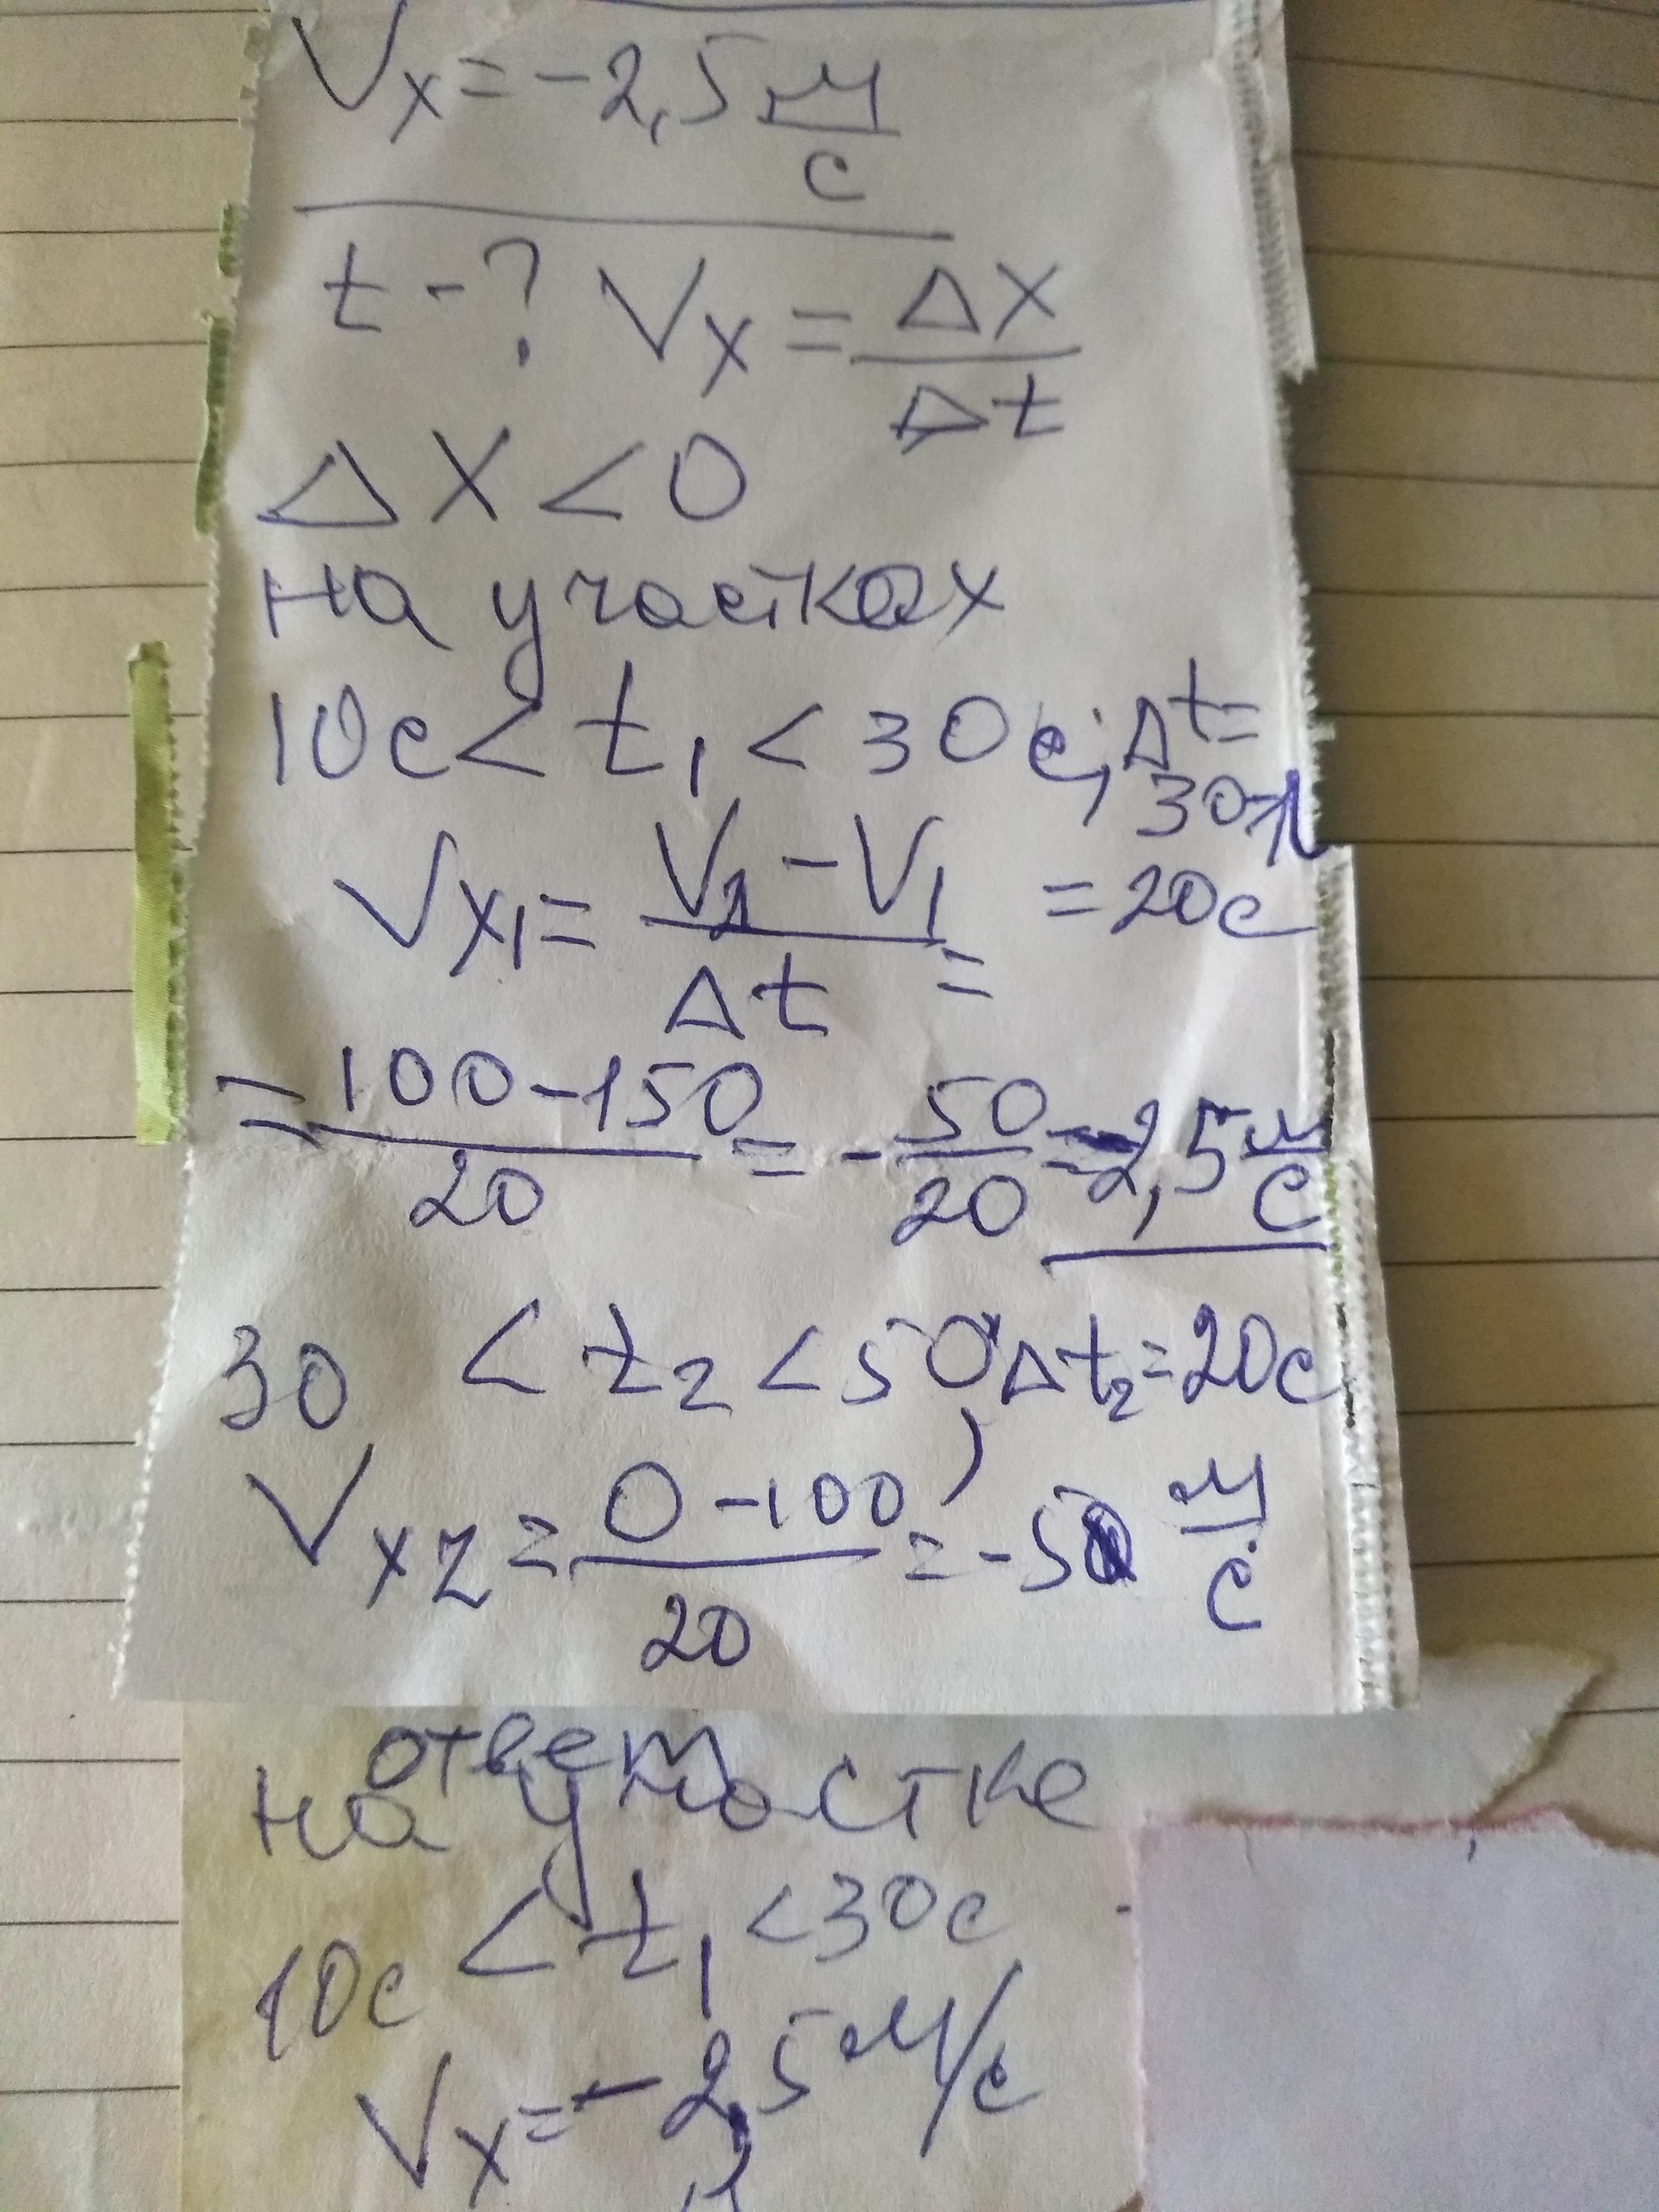 Vx = -2,5 м/с
t - ? Vx = Δx/Δt
Δx < 0
на участках
10с < t₁ < 30с; Δt =
30-1
Vx₁ = (V₂ - V₁)/Δt = = 20с
= (100 - 150)/20 = - 50/20 = -2,5 м/с
30 < t₂ < 50, Δt₂ = 20с
Vx2 = (0 - 100)/20 = -5 м/с
ответ
на участке
10с < t₁ < 30с
Vx = -2,5 м/с